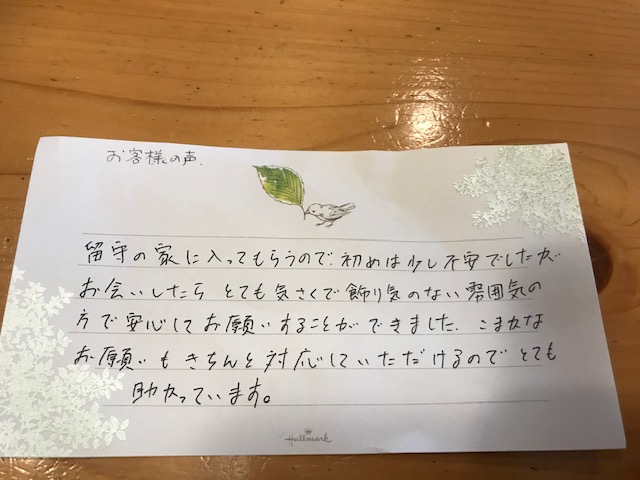 お客様の声.
留守の家に入ってもらうので、初めは少し不安でしたが
お会いしたら とても気さくで飾り気のない雰囲気の
方で安心してお願いすることができました. こまかな
お願いも きちんと対応していただけるので とても
助かっています。
Hallmark